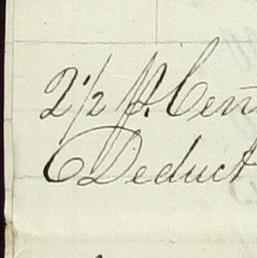 2 1/2 P. Cen
Deduct